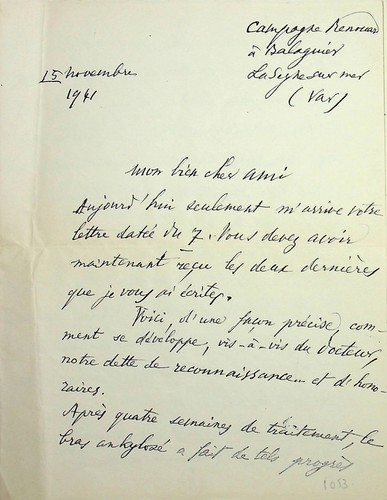 Campagne Renouad
à Balaguier
La Seyne sur mer
(Var)
15 novembre
1941
mon bien cher ami
Aujourd'hui seulement m'arrive votre
lettre datée du 7. Vous devez avoir
maintenant reçu les deux dernières
que je vous ai écrites.
Voici, d'une façon précise, com-
ment se développe, vis-à-vis du Docteur,
notre dette de reconnaissance... et d'hono-
raires.
Après quatre semaines de traitement, le
bras ankylosé a fait de tels progrès
1053